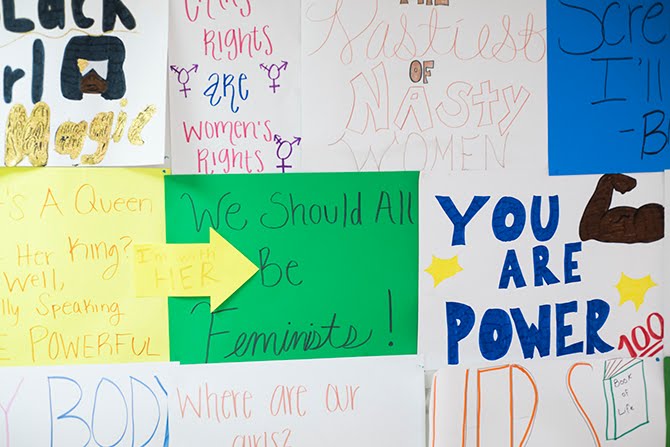 lack
rl
Magic
Rights
are
Women's
Rights
THE
Nastiest
OF
Nasty
WOMEN
Scre
I'll
-B
's A Queen
Her King?
Well,
lly Speaking
E POWERFUL
I'm with
HER
We Should All
Be
Feminists!
YOU
ARE
POWER
100
Y BODY
Where are our
girls?
Book
of
Life